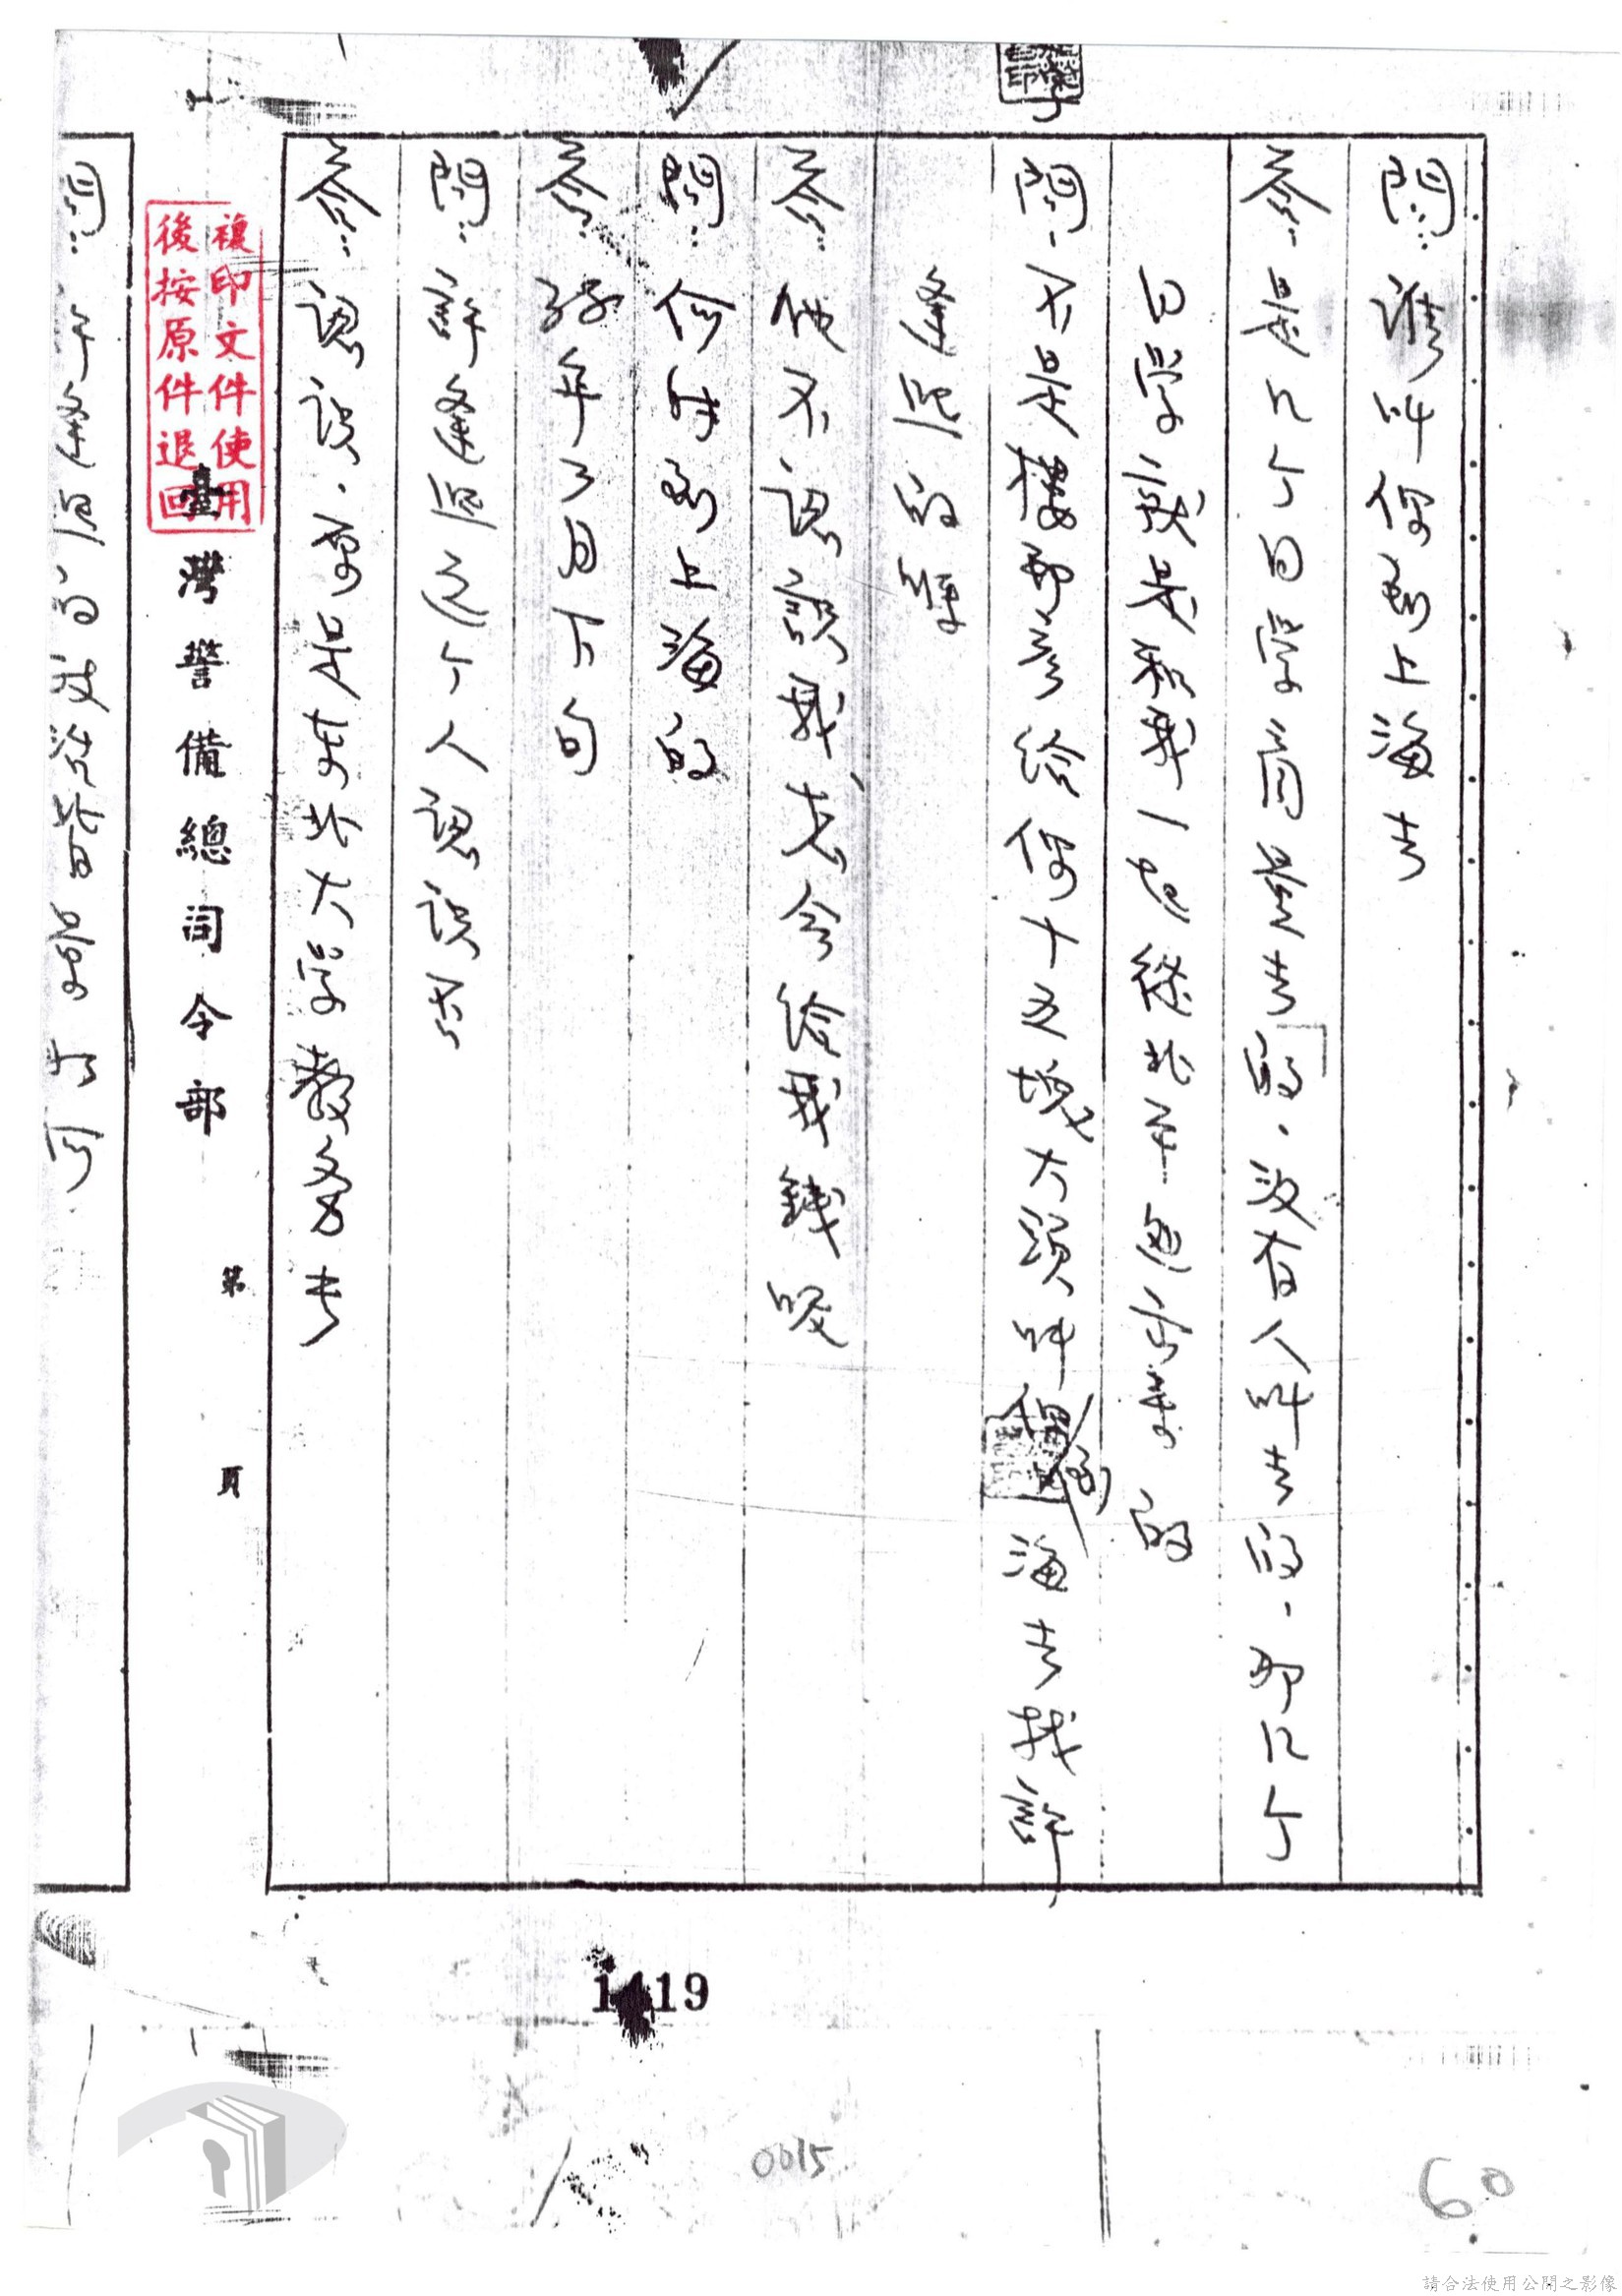 問：誰叫你到上海去
答：是几个同學商量去的，沒有人叫去的，那几个
同學就是和我一起從北平逃亡來的
問：不是樓郁彥給你十五塊大頭叫你到上海去找許
逢熙的嗎
答：他不認識我怎會給我錢呢
問：何時到上海的
答：卅年了月下旬
問：許逢熙這个人認識否
答：認識，曾是東北大學教務長
臺灣警備總司令部
第 頁
複印文件使用
後按原件退回
問：許逢熙
1419
0015
60
請合法使用公開之影像